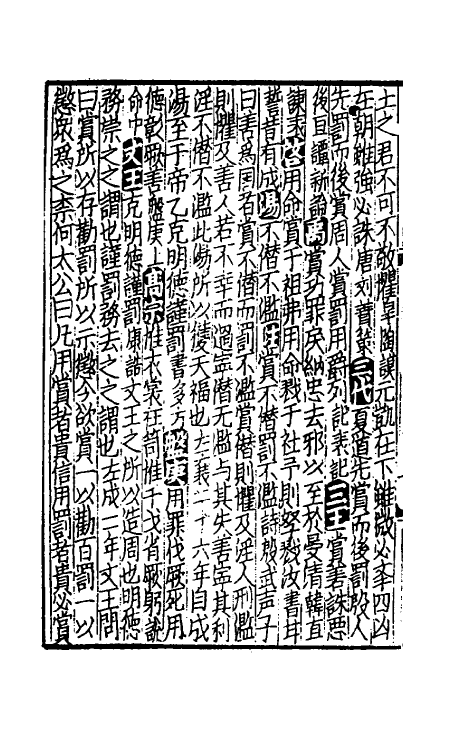 士之君不可不敬懼皋陶謨元凱在下雖微必李四凶
在朝雖強必誅唐刘蕡策三代夏道先賞而後罰殷人
先罰而後賞周人賞罰用爵列記表記三王賞善誅惡
後且讓新論賞功罪矣納忠去邪以至於晏清韓直
諫表啓用命賞于祖弗用命戮于社予則孥戮汝書甘
誓昔有成湯不僭不濫賞不僭罰不濫詩殷武声子
曰善為囯者賞不僭而罰不濫賞僭則懼及淫人刑濫
則懼及善人若不幸而過寕僭无濫与其失善寕其利
淫不僭不濫此湯所以獲天福也左襄二十六年自成
湯至于帝乙克明徳謹罰書多方盤庚用罪伐厥死用
徳彰厥善盤庚上高宗惟衣裳在笥惟干戈省厥躬說
命中文王克明徳謹罰康誥文王之所以造周也明徳
務崇之之謂也謹罰務去之之謂也左成二年文王問
曰賞所以存勸罰所以示懲今欲賞一以勸百罰一以
懲眾為之柰何太公曰凡用賞者貴信用罰者貴必賞